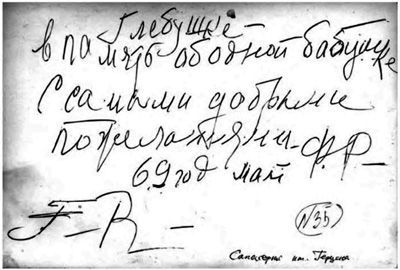 Глебушке –
в память об одной бабушке
С самыми добрыми
пожеланиями – Ф.Р –
69 год май
F – R –
N 35
Санаторий им. Герцена